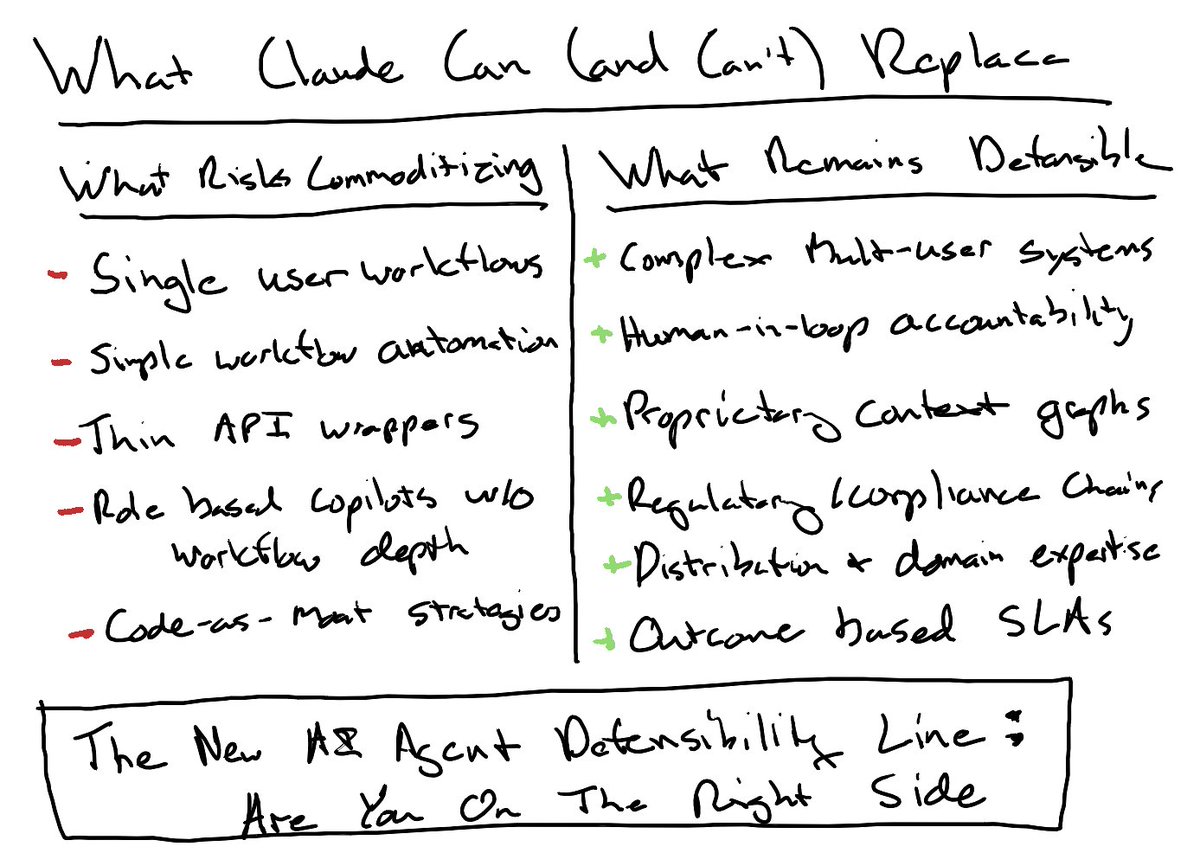 What Claude Can (and Can't) Replace
What Risks Commoditizing
- Single user workflows
- Simple workflow automation
- Thin API wrappers
- Role based copilots w/o
workflow depth
- Code-as-Moat strategies
What Remains Defensible
+ Complex Mult-user systems
+ Human-in-loop accountability
+ Proprietary context graphs
+ Regulatory /compliance chains
+ Distribution + domain expertise
+ Outcome based SLAs
The New AI Agent Defensibility Line:
Are You On The Right Side